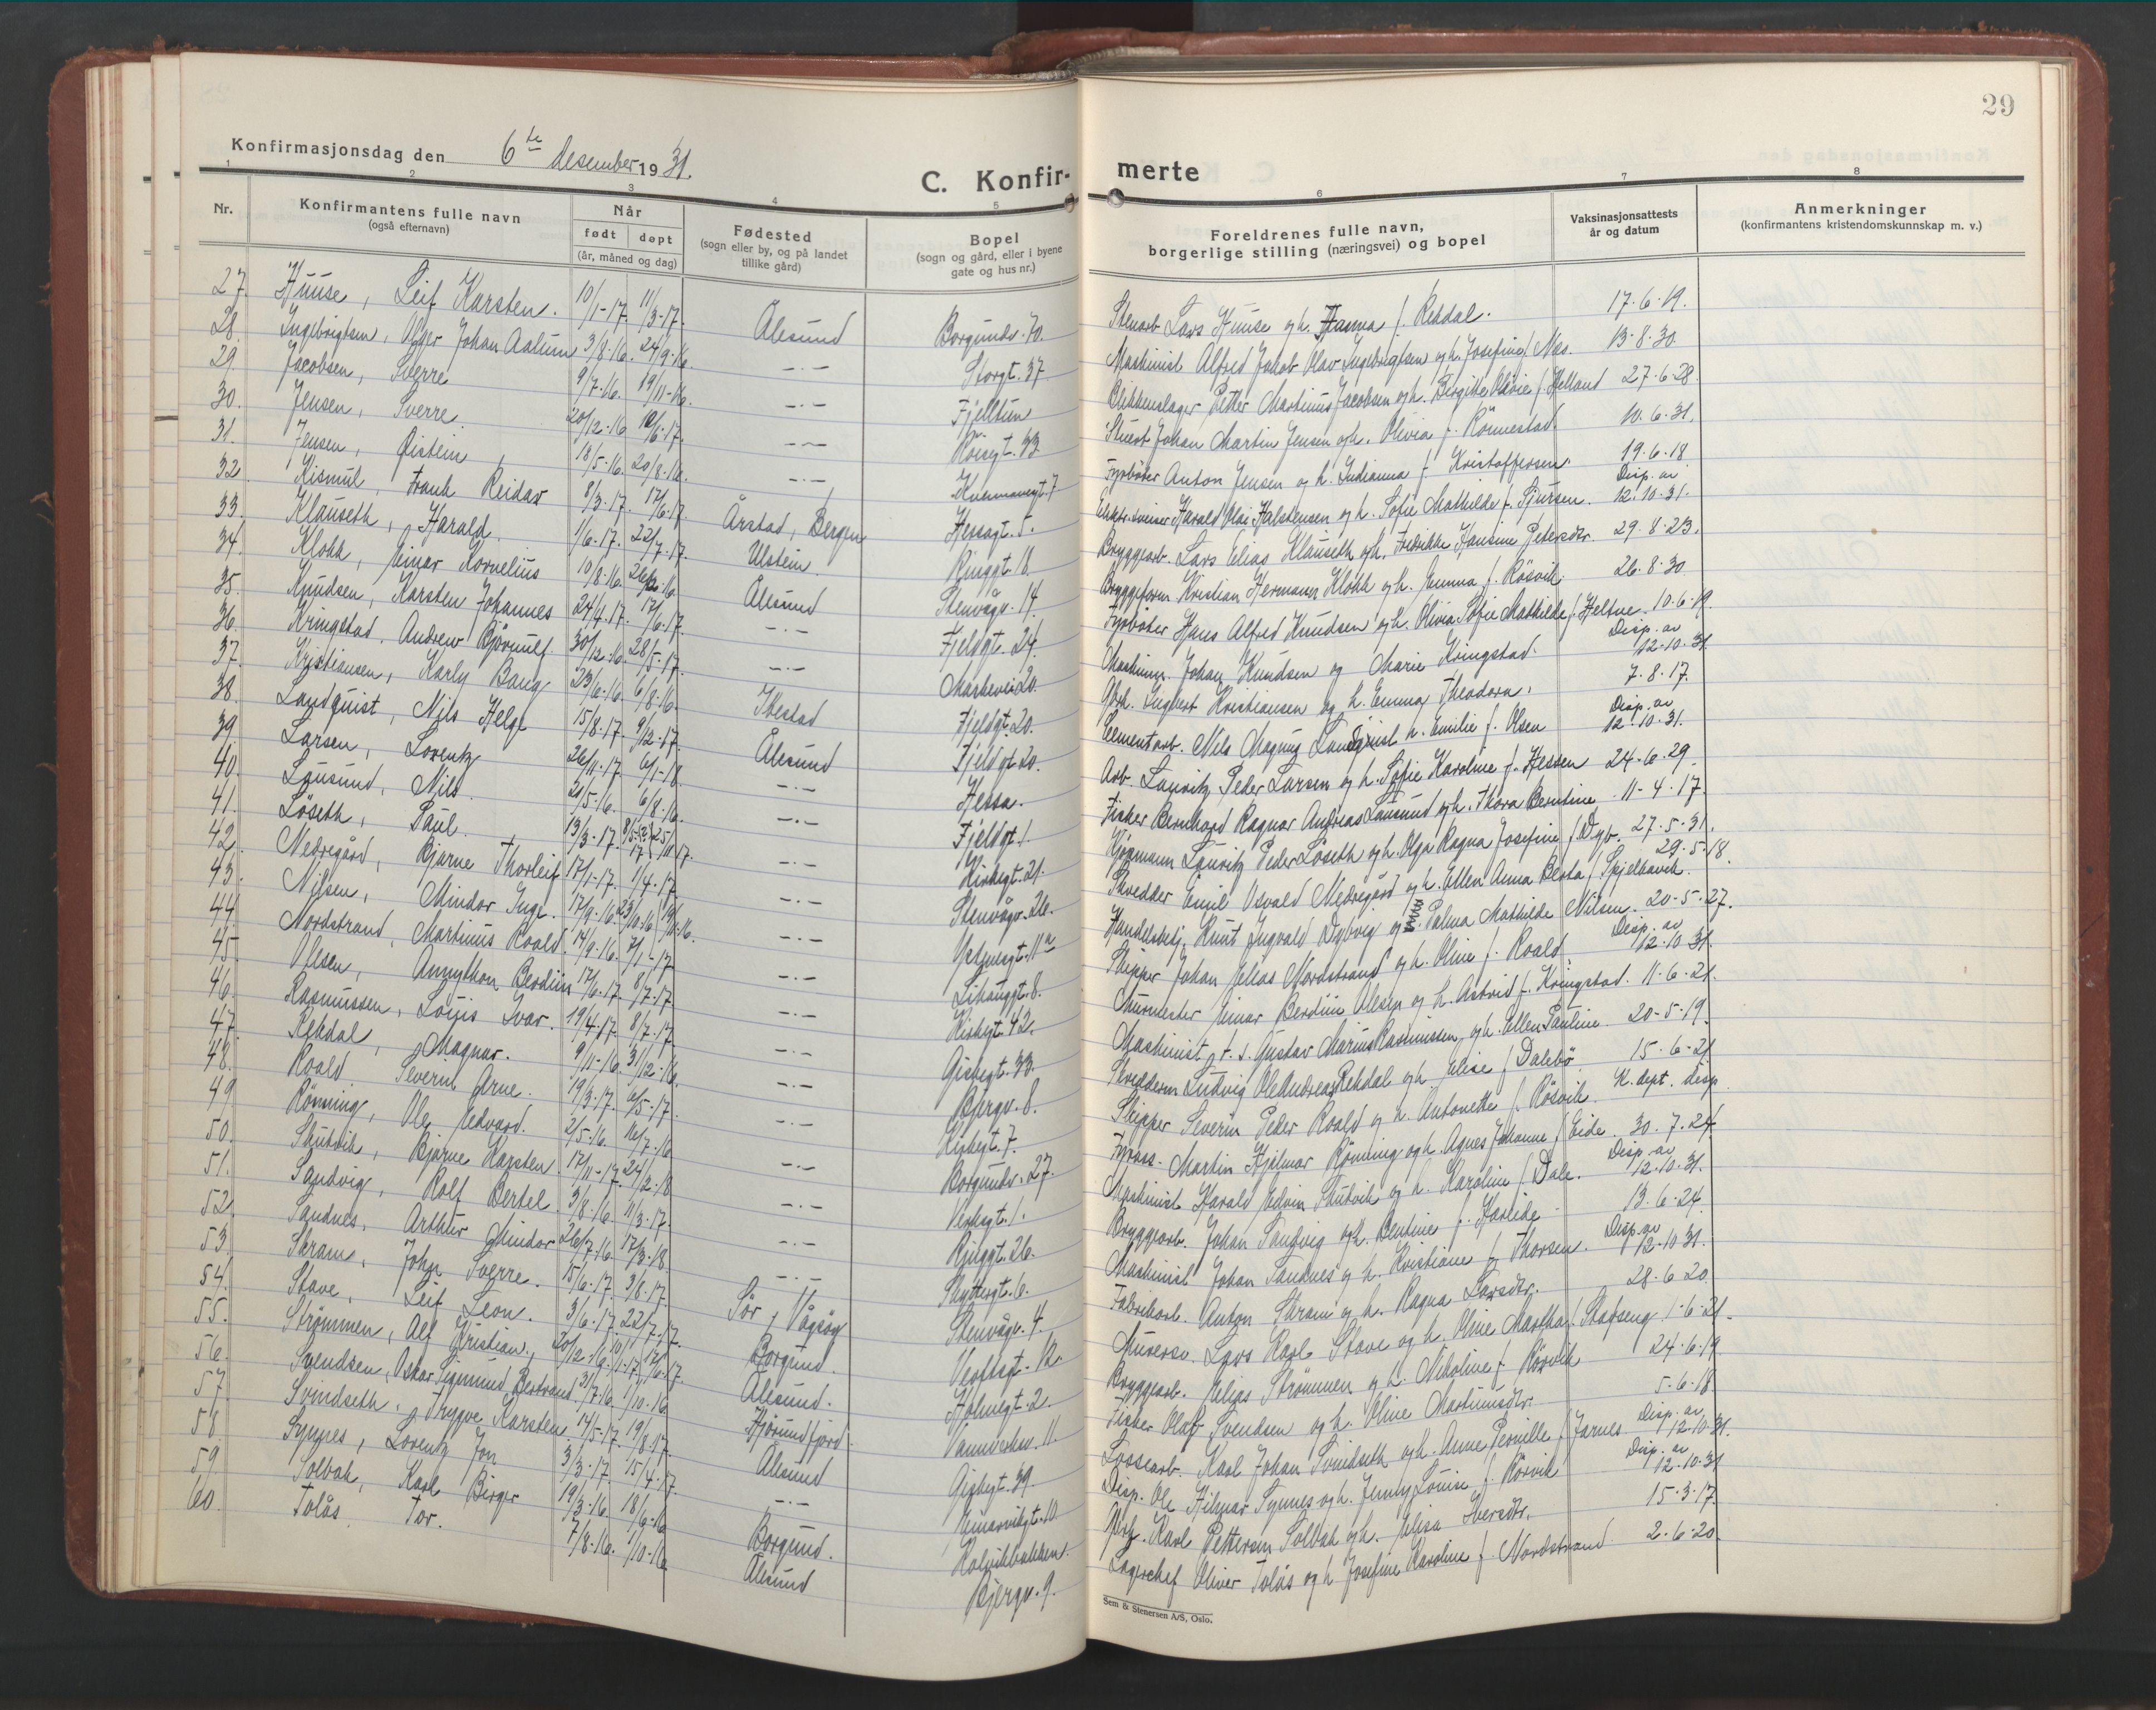 29
Konfirmasjonsdag den 6te Desember 1931.
C. Konfir-
merte
1 2 3 4 5 6 7 8
Nr.
Konfirmantens fulle navn
(også efternavn)
Når
født døpt
(år, måned og dag)
Fødested
(sogn eller by, og på landet
tillike gård)
Bopel
(sogn og gård, eller i byene
gate og hus nr.)
Foreldrenes fulle navn,
borgerlige stilling (næringsvei) og bopel
Vaksinasjonsattests
år og datum
Anmerkninger
(konfirmantens kristendomskunnskap m. v.)
27. Huuse, Leif Karsten. 10/1-17. 11/3-17. Ålesund Borgundv. 70. Stenarb. Lars Huuse og h. Hanna f. Rekdal. 17.6.19.
28. Ingebrigtsen, Johan 3/8.16. 24/9.16. -.- Storgt. 37. Maskinist Alfred Jakob Olav Ingebrigtsen og h. Josefine f. Næs. 13-8-30.
29. Jacobsen, Sverre 9/7-16. 19/11-16. -.- Fjelltun Blikkenslager Petter Martinus Jacobsen og h. Birgitte Olivie f. Helland 27-6-28.
30. Jensen, Sverre. 20/12-16 -.- Stuert Johan Martin Jensen og h. Olivia f. Rönnestad. 10.6.31.
31. Jensen, Øistein 18/5-16. 20/8.16. -.- Fyrbøter Anton Jensen og h. Indianna f. Kristoffersen. 19.6.18
32. Kismul, Frank Reidar 8/3-17. 17/6-17. Årstad, Bergen Hessagt. 5. Harald Olai Halstensen og h. Sofie Mathilde f. Sjursen. Disp. av 12.10.31.
33. Klauseth, Harald. 1/6-17. 22/7-17. Ulstein. Ringgt. Bryggearb. Lars Elias Klauseth og h. Fredrikke Hansine Petersdtr. 29.8.23.
34. Klokk, Einar Kornelius 10/8.16. Ålesund Stenvågv. 14. Kristian Hermann Klokk og h. Emma f. Rösvik. 26.8.30
35. Knudsen, Karsten Johannes 24/4.17. 17/6.17. -.- Fjeldgt. 24. Fyrbøter Hans Alfred Knudsen og h. Olivia Sofie Mathilde f. 10.6.19.
36. Kringstad, Andrew Bjørnulf 30/12.16. 28/5-17. -.- 20. Johan Knudsen og Marie Kringstad. Disp. av 12-10.31.
37. Kristiansen, Karly Baug 23/6-16. 6/8.16. Ibestad Fjeldgt. 20. Ingbert Kristiansen og h. Emma Theodora. 7.8.17.
38. Landquist, Nils Helge 15/8.17. 9/12-17. Ålesund Fjeldgt. 20. Sementarb. Nils Magnus Landquist h. Emilie f. Olsen Disp. av 12.10.31.
39. Larsen, Lorentz 26/11-17. 6/1-18. -.- Hessa. Arb. Lauritz Peder Larsen og h. Sofie Karoline f. Hessen 24-6.29.
40. Nils. 21/5-16. 6/8.16. -.- Fjeldgt. 1. Fisker Bernhard Ragnar Andreas og h. Thora Berntine. 11-4.17.
41. Löseth, Paul. 13/3-17. -.- Kirkegt. 21. Lauritz Peder Löseth og h. Olga Ragna Josefine f. Dyb. 27.5.31.
42. Nedregård, Bjarne Thorleif 17/1-17. 1/4-17. -.- Stenvågv. 26. Skredder Emil Osvald Nedregård og h. Ellen Anna Berta f. Spjelkavik. 29.5-18.
43. Nilsen, Mindor Inge. 17/9-16. -.- 11a Handelsbetj. Knut Ingvald Dybvig og Palma Mathilde Nilsen. 20-5-27.
44. Nordstrand, Martinus Roald. 14/9-16. 7/1-17. -.- Lihauggt. 8. Skipper Johan Elias Nordstrand og h. Oline f. Roald. Disp. av 12-10 31.
45. Olsen, Berdiin 17/6-17. 8/7-17. -.- Kirkegt. 42. Murmester Einar Berdiin Olsen og h. Astrid f. Kringstad. 11-6-21.
46. Rasmussen, Louis Ivar. 19/4.17. 8/7-17. -.- Giskegt. 33. Maskinist Gustav Marius Rasmussen og h. Ellen Pauline. 20-5-19.
47. Rekdal, Magnar. 9/11-16. 31/12-16. -.- Bjergv. 8. Ludvig Ole Andreas Rekdal og h. Elise f. Dalebø. 15.6-21.
48. Roald Severin Arne. 19/3-17. 6/5-17. -.- Kirkegt. 7. Skipper Severin Peder Roald og h. Antonette f. Rösvik. K. dept. disp.
49. Rönning, Ole Edvard. 2/5-16. 16/7-16 -.- Borgundv. 27. Martin Hjelmar Rönning og h. Agnes Johanne f. Eide. 30.7.24.
50. Skutvik, Bjarne Karsten 17/11-17. 24/2-18 -.- Verksgt. 1. Maskinist Harald Edvin Skutvik og h. Karoline f. Dale. Disp. av 12.10.31.
51. Sandvig, Rolf Bertel. 3/8-16. 11/3-17. -.- Ringgt. 26. Bryggearb. Johan Sandvig og h. Bentine f. Hareide. 13-6-24.
52. Sandnes, Arthur Mindor 26/7-16. 17/3-18. -.- Skuttergt. 6. Maskinist Johan Sandnes og h. Kristiane f. Thorsen. Disp. av 12-10 31.
53. Skram, John Sverre. 15/6-17. 3/8-17. Sør, Vågsøy Stenvågv. 4. Fabrikarb. Anton Skram og h. Ragna Larsdtr. 28.6.20.
54. Stave, Leif Leon. 3/6-17. 22/7-17. Borgund. 12. Lars Karl Stave og h. Oline Martha f. Stafseng 1-6-21.
55. Strømmen, Alf Kristian. Ålesund. Holmegt. 2. Bryggearb. Elias Strømmen og h. Nikoline f. Rørvik 24.6.19.
56. Svendsen, Oskar Sigmund Bertrand 31/7-16. 1/10-16 Hjørundfjord. 11. Fisker Olaf Svendsen og h. Oline Martinusdtr. 5.6-18.
57. Svindseth, Trygve Karsten. 14/5-17. 19/8-17. Ålesund Giskegt. 39. Lossearb. Karl Johan Svindseth og h. Anne Pernille f. Jarnes Disp. av 12-10-31.
58. Synnes, Lorentz Jon 3/3-17 15/4-17. -.- 10. Disp. Ole Hilmar Synnes og h. Jenny Louise f. Rörvik Disp. av 12.10.31
59. Solbak, Karl Birger 19/3-16. 18/6-16 Borgund. Kolvikbakken. Karl Pettersen Solbak og h. Elisa Iversdtr. 15.3.17.
60. Tolås Tor. 7/8-16. 1/10-16 Ålesund Bjergv. 9. Lagerchef Oliver Tolås og h. Josefine Karoline f. Nordstrand. 2.6-20.
Sem & Stenersen A/S, Oslo.